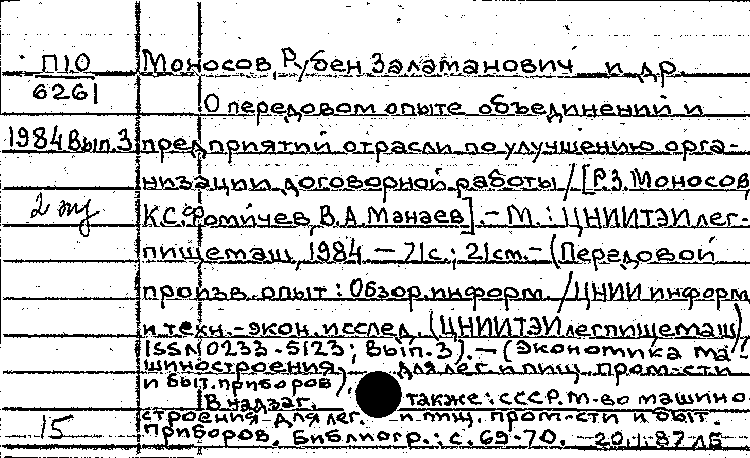 П10 Моносов, Рубен Залманович и др.
6261 О передовом опыте объединений и
1984 Вып.3 предприятий отрасли по улучшению орга-
низации договорной работы / [Р.З. Моносов,
2 экз К.С. Фомичев, В.А. Манаев]. – М.: ЦНИИТЭИлег-
пищемаш, 1984 – 71 с.; 21 см. – (Передовой
произв. опыт: Обзор. информ. / ЦНИИ информ.
и техн.-экон. исслед. (ЦНИИТЭИлегпищемаш),
ISSN 0233-5123; Вып. 3). – (Экономика ма-
шиностроения для лег. и пищ. пром-сти
и быт. приборов).
В надзаг. также: СССР, М-во машино-
строения для лег. и пищ. пром-сти и быт.
15 приборов. Библиогр.: с. 69-70.